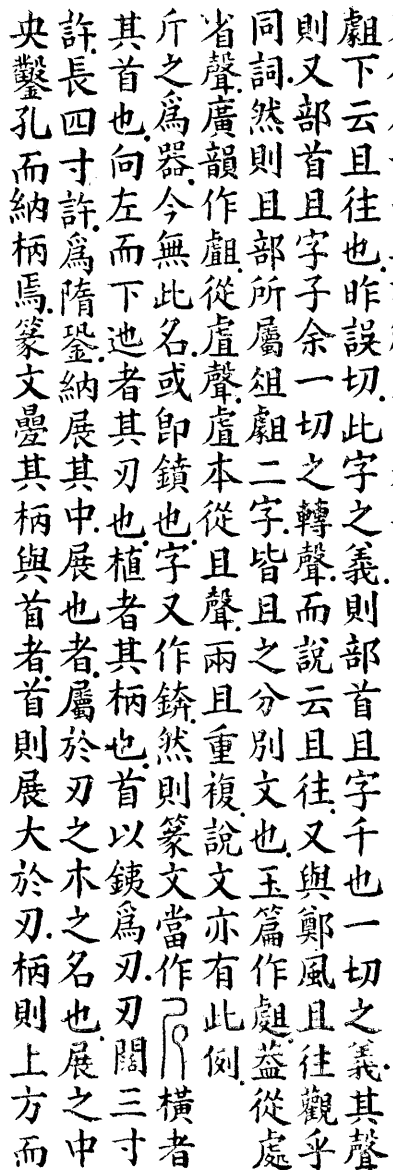 䣯下云且往也昨誤切此字之義則部首且字千也一切之義其聲
則又部首且字子余一切之轉聲而說云且往又與鄭風且往觀乎
同詞然則且部所屬俎䣯二字皆且之分別文也玉篇作䖒葢從處
省聲廣韻作䖒從虘聲虘本從且聲兩且重複說文亦有此例
斤之爲器今無此名或卽鐼也字又作錛然則篆文當作橫者
其首也向左而下迆者其刃也植者其柄也首以銕爲刃刃闊三寸
許長四寸許爲隋銎納展其中展也者屬於刃之木之名也展之中
央鑿孔而納柄焉篆文曡其柄與首者首則展大於刃柄則上方而